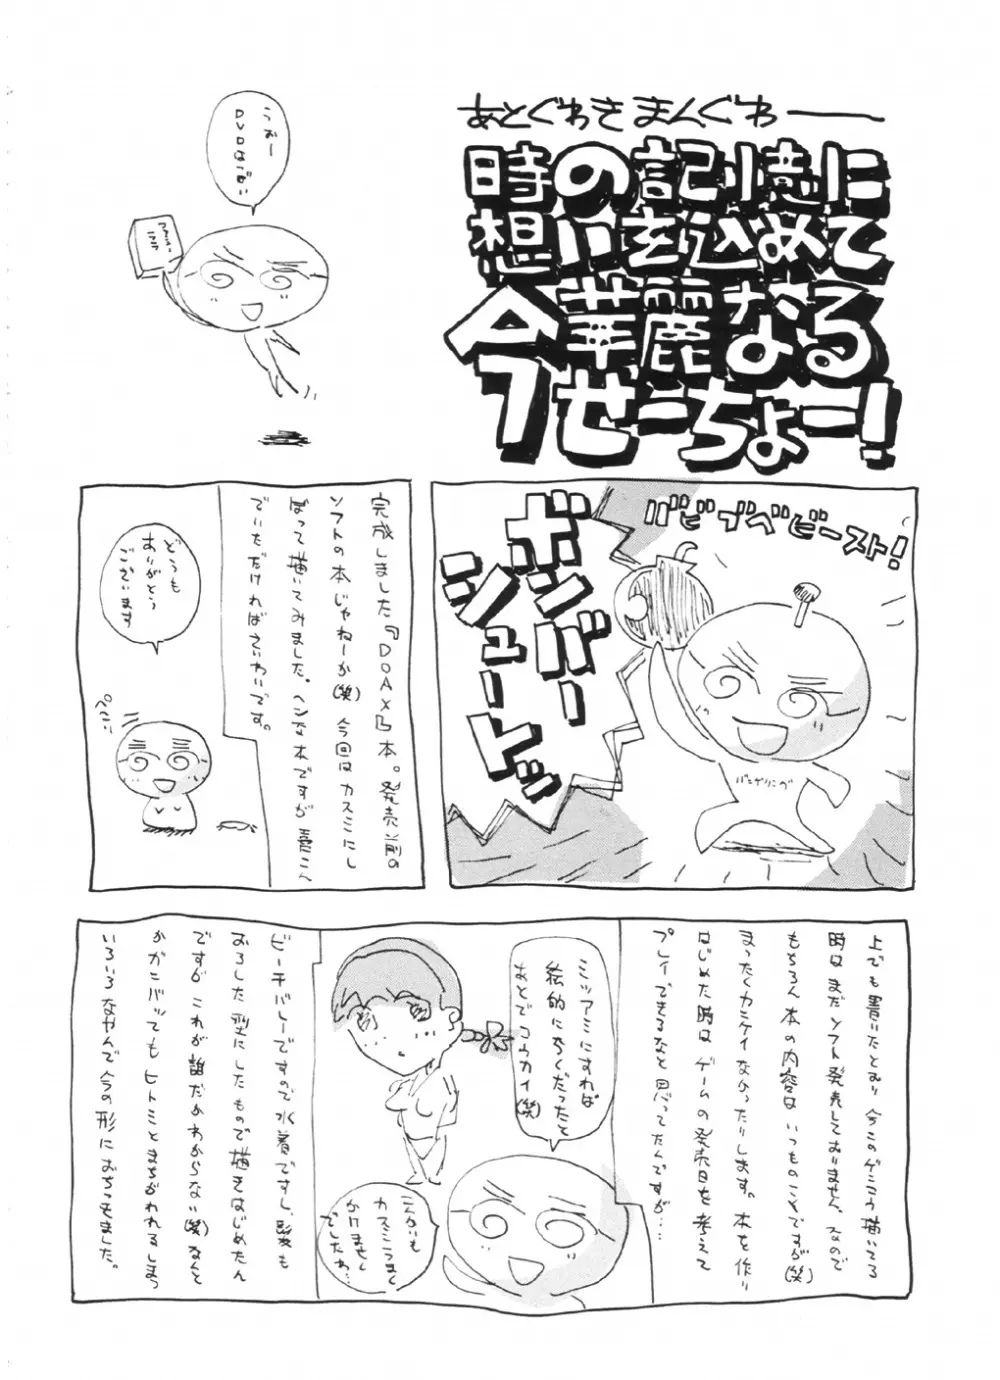 あとぐわき まんぐわ——
時の記憶に
想いを込めて
今華麗なる
せーちょー!
DVDは
バビブベビースト!
ボンバー
シュートッ
バンゲリング
完成しました『DOAX』本。発売前の
ソフトの本じゃねーか(笑) 今回はカスミにし
ぼって描いてみました。ヘンな本ですが喜こん
でいただければさいわいです。
どうも
ありがとう
ございます
ぺこ
上でも書いたとおり 今このゲンコウ描いてる
時はまだソフト発売しておりません。なので
もちろん本の内容は いつものことですが(笑)
まったくカンケイなかったりします。本を作り
はじめた時は ゲームの発売日を考えて
プレイできるなと思ってたんですが…
ミツアミにすれば
絵的にらくだったと
あとでコウカイ(笑)
こんかいも
カスミうまく
かけません
でしたね…
ビーチバレーですので水着ですし、髪も
おろした型にしたもので描きはじめたん
ですが これが誰だかわからない(笑) なんと
かがんばってもヒトミとまちがわれるしまつ
いろいろなやんで今の形におちつきました。